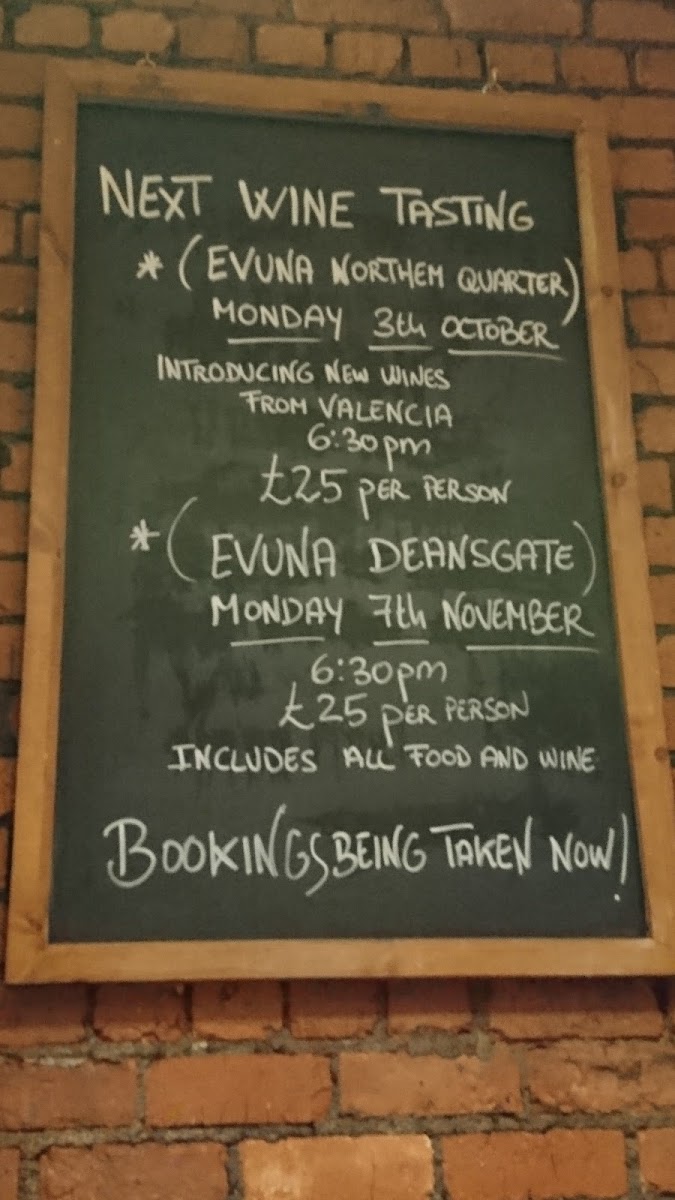 NEXT WINE TASTING
* (EVUNA NORTHEM QUARTER)
MONDAY 3th OCTOBER
INTRODUCING NEW WINES
FROM VALENCIA
6:30pm
£25 PER PERSON
* (EVUNA DEANSGATE)
MONDAY 7th NOVEMBER
6:30pm
£25 PER PERSON
INCLUDES ALL FOOD AND WINE
BOOKINGS BEING TAKEN NOW!